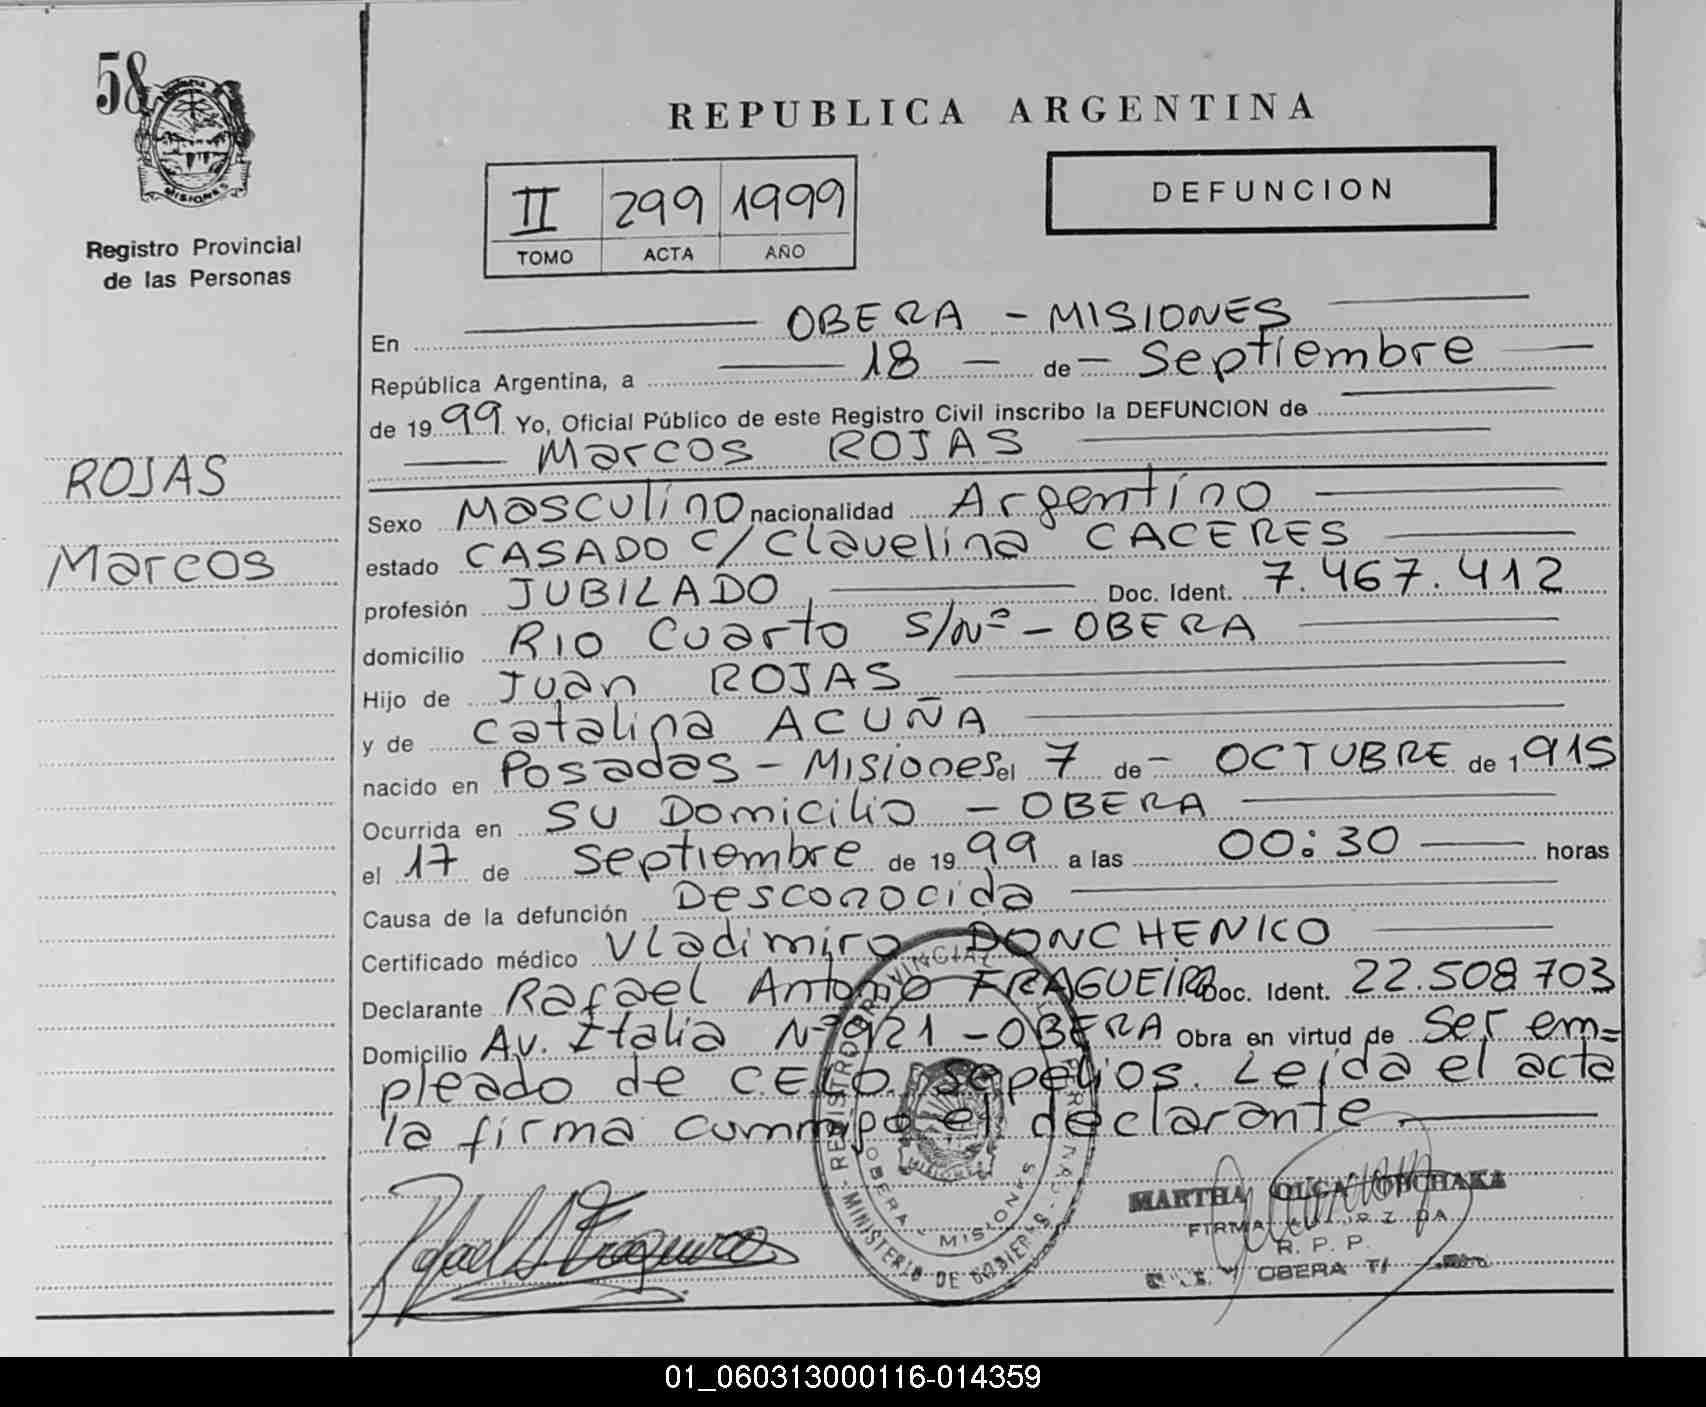 58
MISIONES
Registro Provincial
de las Personas
ROJAS
Marcos
REPUBLICA ARGENTINA
II 299 1999
TOMO ACTA AÑO
DEFUNCION
En OBERA - MISIONES
República Argentina, a 18 - de - Septiembre
de 1999 Yo, Oficial Público de este Registro Civil inscribo la DEFUNCION de
Marcos ROJAS
Sexo Masculino nacionalidad Argentino
estado CASADO c/Clavelina CACERES
profesión JUBILADO Doc. Ident. 7.467.412
domicilio RIO Cuarto S/Nº - OBERA
Hijo de Juan ROJAS
y de Catalina ACUÑA
nacido en Posadas - Misiones el 7 de - OCTUBRE de 1915
Ocurrida en SU Domicilio - OBERA
el 17 de Septiembre de 1999 a las 00:30 horas
Causa de la defunción Desconocida
Certificado médico Vladimiro DONCHENKO
Declarante Rafael Antonio FRAGUEIRO Doc. Ident. 22.508703
Domicilio Av. Italia Nº 921 - OBERA Obra en virtud de Ser em=
pleado de C.E.L.O. sepelios. Leida el acta
la firma conmigo el declarante
REGISTRO PROVINCIAL DE LAS PERSONAS
MINISTERIO DE GOBIERNO
OBERA MISIONES
MISIONES
MARTHA OLGA
FIRMA AUTORIZADA
R. P. P.
OBERA
01_060313000116-014359